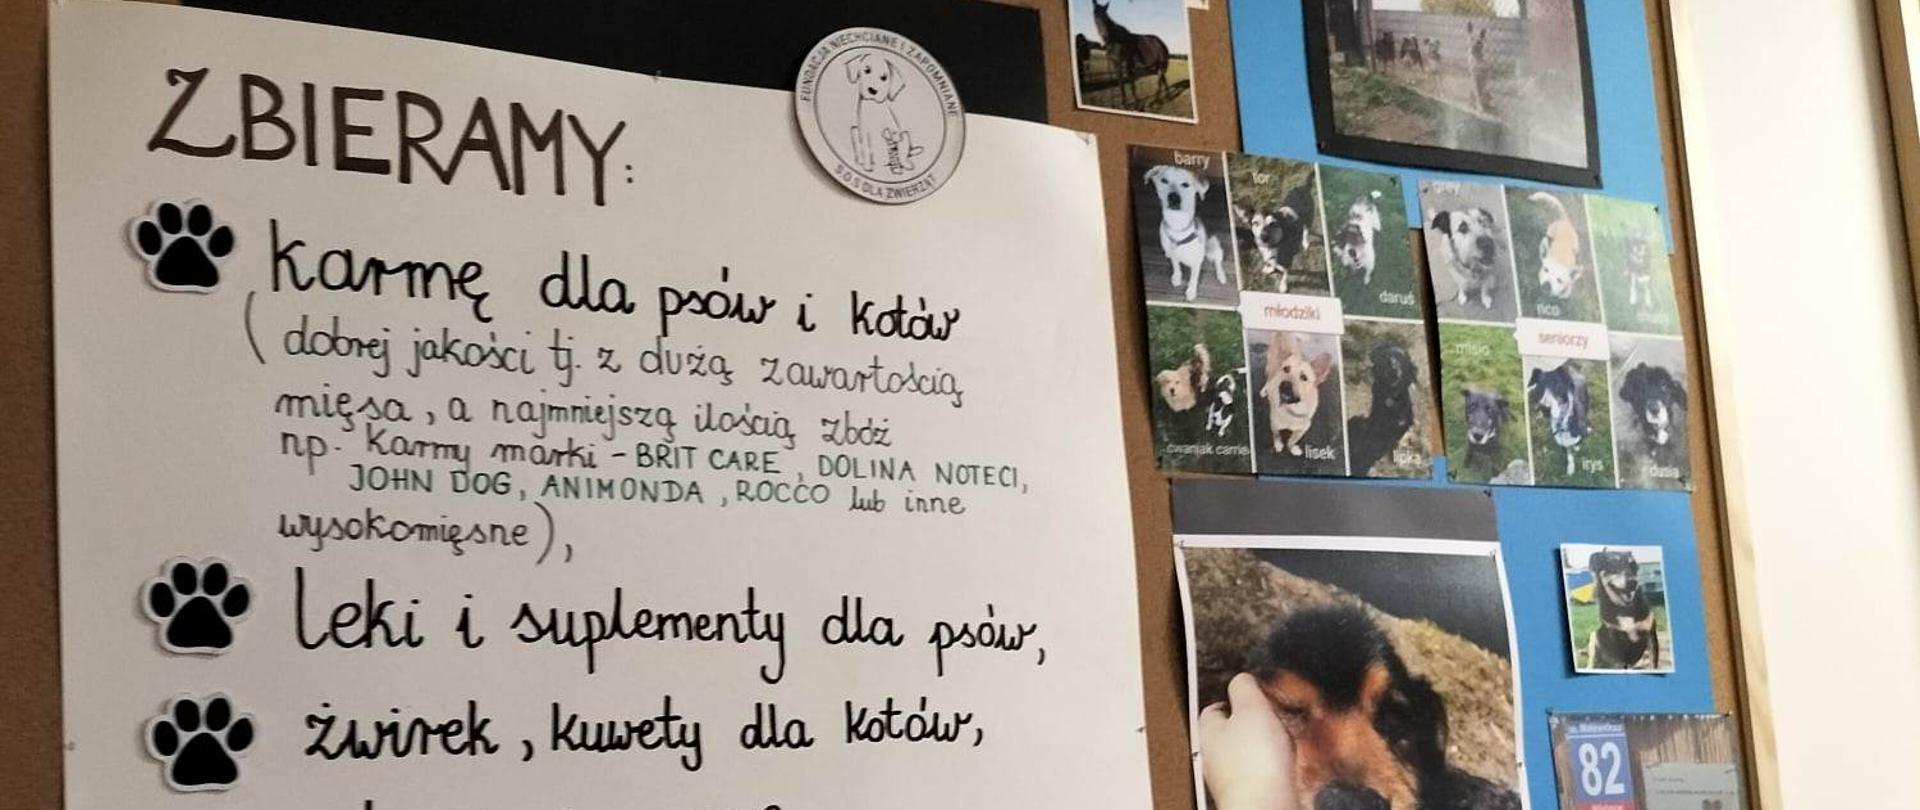 ZBIERAMY:
FUNDACJA NIECHCIANE I ZAPOMNIANE
S.O.S DLA ZWIERZĄT
karmę dla psów i kotów
(dobrej jakości tj. z dużą zawartością
mięsa, a najmniejszą ilością zbóż
np. karmy marki - BRIT CARE, DOLINA NOTECI,
JOHN DOG, ANIMONDA, ROCCO lub inne
wysokomięsne),
leki i suplementy dla psów,
żwirek, kuwety dla kotów,
barry
tor
daruś
młodziki
cwaniak carrie
lisek
lipka
grey
rico
seniorzy
misio
irys
dusia
82